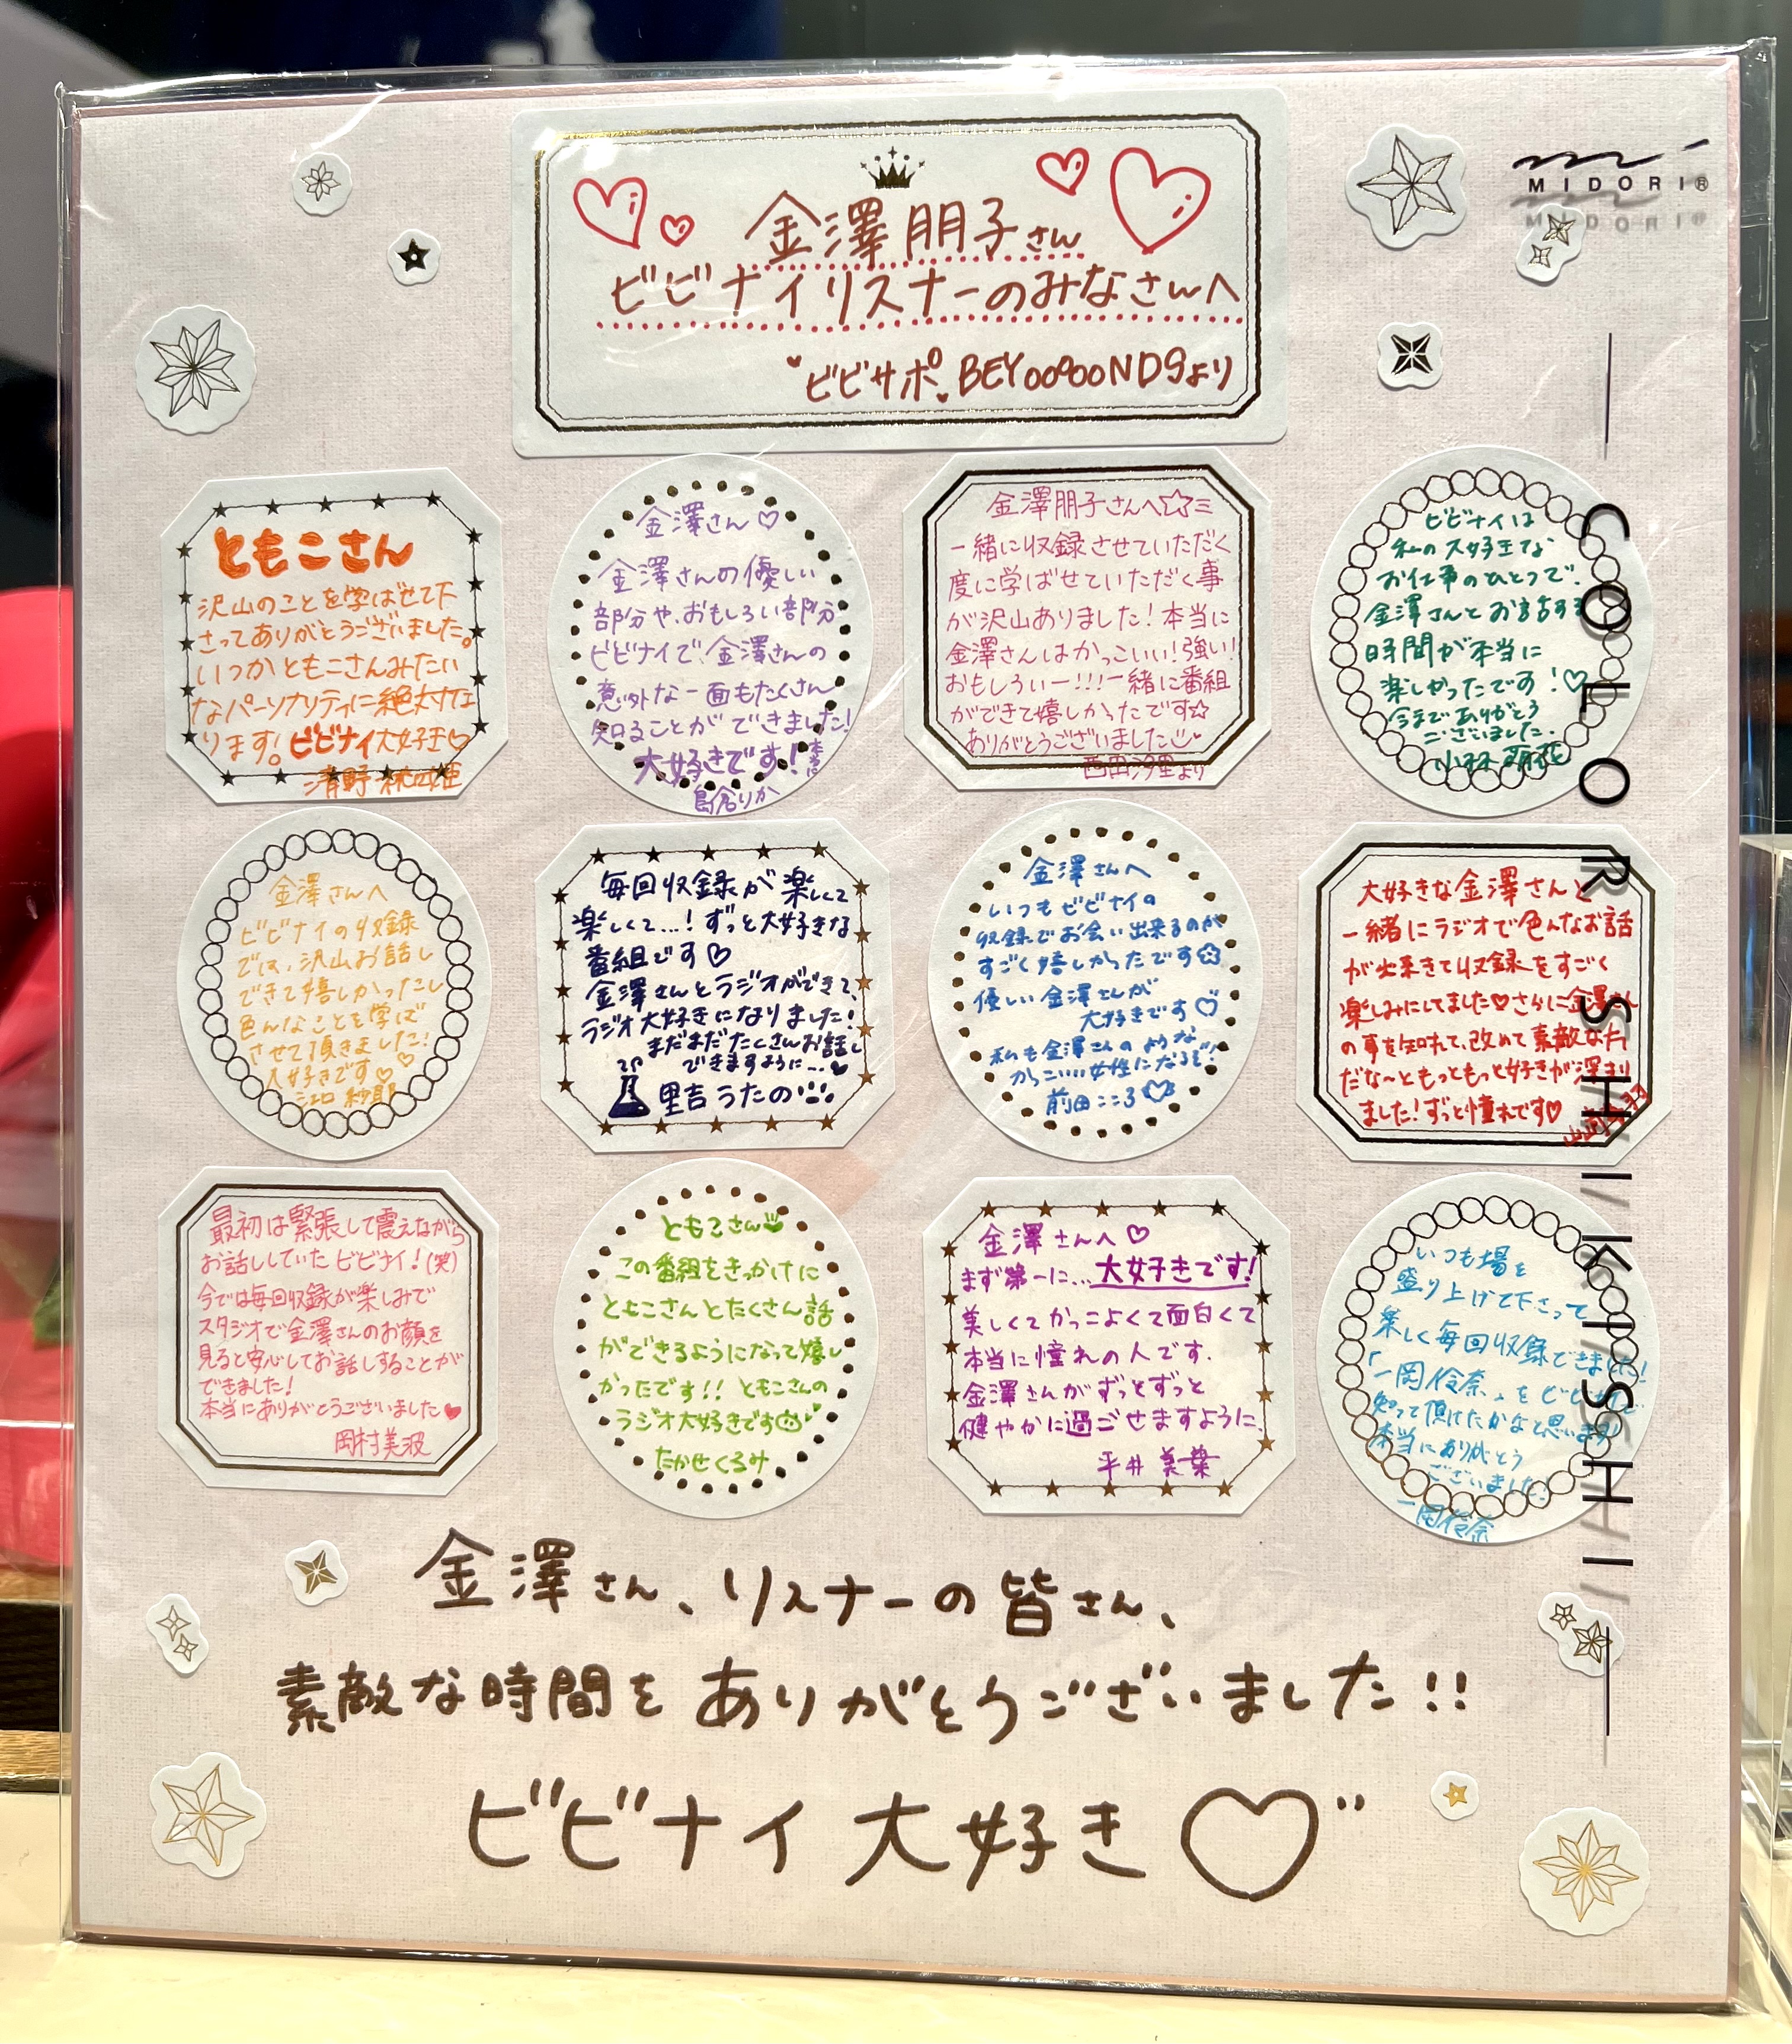 金澤朋子さん
ビビナイリスナーのみなさんへ
ビビサポ BEYOOOOONDSより
MIDORI®
COLOR SHIKISHI
ともこさん
沢山のことを学ばせて下
さってありがとうございました。
いつかともこさんみたい
なパーソナリティに絶対な
ります!ビビナイ大好き♡
清野桃々姫
金澤さん♡
金澤さんの優しい
部分や、おもしろい部分
ビビナイで、金澤さんの
意外な一面もたくさん
知ることができました!
大好きです!本当に
島倉りか
金澤朋子さんへ☆三
一緒に収録させていただく
度に学ばせていただく事
が沢山ありました!本当に
金澤さんはかっこいい!強い!
おもしろいー!!!一緒に番組
ができて嬉しかったです☆
ありがとうございました
西田汐里より
ビビナイは
私の大好きな
お仕事のひとつで、
金澤さんとお話する
時間が本当に
楽しかったです!♡
今までありがとう
ございました.
小林萌花
金澤さんへ
ビビナイの収録
では、沢山お話し
できて嬉しかったし
色んなことを学ば
させて頂きました!
大好きです♡♡
江口紗耶
毎回収録が楽しくて
楽しくて…!ずっと大好きな
番組です♡
金澤さんとラジオができて、
ラジオ大好きになりました!
まだまだたくさんお話し
できますように…♥
里吉うたの
金澤さんへ
いつもビビナイの
収録でお会い出来るのが
すごく嬉しかったです☆
優しい金澤さんが
大好きです♡
私も金澤さんのような
かっこいい女性になるぞ!
前田こころ
大好きな金澤さんと
一緒にラジオで色んなお話
が出来きて収録をすごく
楽しみにしてました♡さらに金澤さん
の事を知れて、改めて素敵な方
だな〜ともっともっと好きが深まり
ました!ずっと憧れです♡
最初は緊張して震えながら
お話ししていたビビナイ!(笑)
今では毎回収録が楽しみで
スタジオで金澤さんのお顔を
見ると安心してお話しすることが
できました!
本当にありがとうございました♥
岡村美波
ともこさん
この番組をきっかけに
ともこさんとたくさん話
ができるようになって嬉し
かったです!!ともこさんの
ラジオ大好きです
たかせくるみ
金澤さんへ♡
まず第一に…大好きです!
美しくてかっこよくて面白くて
本当に憧れの人です.
金澤さんがずっとずっと
健やかに過ごせますように.
平井美葉
いつも場を
盛り上げて下さって
楽しく毎回収録できました!
「一岡伶奈」をビビナイで
知って頂けたかなと思います!
本当にありがとう
ございました.
一岡伶奈
金澤さん、リスナーの皆さん、
素敵な時間をありがとうございました!!
ビビナイ大好き♡